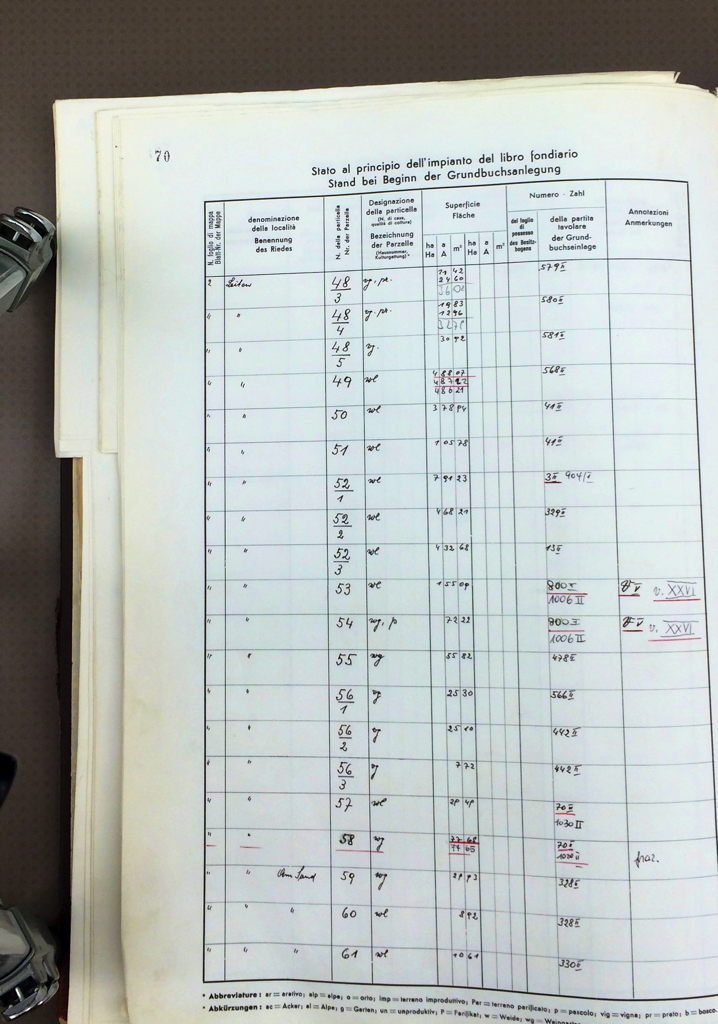 70
Stato al principio dell'impianto del libro fondiario
Stand bei Beginn der Grundbuchsanlegung
N. foglio di mappa
Blatt-Nr. der Mappe
denominazione
della località
Benennung
des Riedes
N. della particella
Nr. der Parzelle
Designazione
della particella
(N. di casa,
qualità di coltura)
Bezeichnung
der Parzelle
(Hausnummer,
Kulturgattung)*
Superficie
Fläche
ha a m² ha a m²
Ha A Ha A
Numero - Zahl
del foglio
di possesso
des Besitz-
bogens
della partita
tavolare
der Grund-
buchseinlage
Annotazioni
Anmerkungen
2 Leiten 48/3 vg. pr. 21 42 579 II
24 60
" " 48/4 vg. pr. 19 83 580 II
12 96
" " 48/5 vg. 30 92 581 II
" " 49 wl 4 88 07 568 II
4 87 22
4 86 21
" " 50 wl 3 78 94 41 II
" " 51 wl 1 05 78 41 II
" " 52/1 wl 7 91 23 3 II 904/II
" " 52/2 wl 4 68 21 329 II
" " 52/3 wl 4 32 68 13 II
" " 53 wl 1 55 09 800 II v. XXVI
1006 II
" " 54 wg, p 72 22 800 II v. XXVI
1006 II
" " 55 wg 55 82 478 II
" " 56/1 vg 25 30 566 II
" " 56/2 vg 25 10 442 II
" " 56/3 vg 7 72 442 II
" " 57 wl 29 49 70 II
1030 II
" " 58 wg 77 68 70 II
77 65 1030 II fraz.
" " Am Sand 59 wg 29 93 328 II
" " " 60 wl 8 92 328 II
" " " 61 wl 10 61 330 II
* Abbreviature: ar = arativo; alp = alpe; o = orto; imp = terreno improduttivo; Per = terreno perificato; p = pascolo; vig = vigna; pr = prato; b = bosco
* Abkürzungen: ac = Acker; al = Alpe; g = Garten; un = unproduktiv; P = Parifikat; w = Weide; wg =